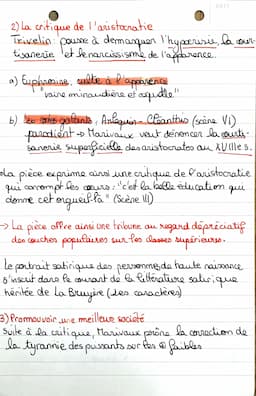 2) La critique de l'aristocratie
Trivelin : pousse à démasquer l'hypocrisie, la cour-
tisanerie et le narcissisme de l'apparence.
a) Euphrosine, culte à l'apparence
"vaine minaudière et coquette"
b) Arlequin - Cléanthis (scène VI)
parodient → Marivaux veut dénoncer la courti-
sanerie superficielle des aristocrates au XVIIIe s.
La pièce exprime ainsi une critique de l'aristocratie
qui corrompt les cœurs : "c'est la belle éducation qui
donne cet orgueil-là" (Scène III)
→ La pièce offre ainsi une tribune au regard dépréciatif
des couches populaires sur les classes supérieures.
Le portrait satirique des personnes de haute naissance
s'inscrit dans le courant de la littérature satirique
héritée de La Bruyère (Les caractères)
3) Promouvoir une meilleure société
Suite à la critique, Marivaux prône la correction de
la tyrannie des puissants sur les faibles